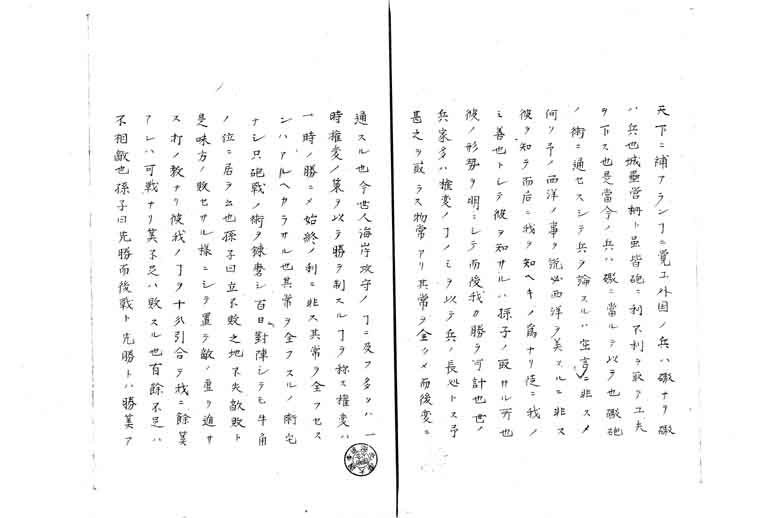 天下ニ補アランヿニ覚ユ外国ノ兵ハ礮ナリ礮
ハ兵也城壘営柵ト虽皆砲ニ利不利ヲ取テ工夫
ヲ下ス也是當今ノ兵ハ礮ニ當ルヲ以テ也礮砲
ノ術ニ通セスシテ兵ヲ論スルハ空言ニ非スメ
何ソ予ノ西洋ノ事ヲ説必西洋ヲ美スルニ非ス
彼ヲ知テ而后ニ我ヲ知ヘキノ為ナリ徒ニ我ノ
ミ善也トシテ彼ヲ知サルハ孫子ノ取サル所也
彼ノ形勢ヲ明ニシテ而後我カ勝ヲ可計也世ノ
兵家多ハ権変ノヿノミヲ以テ兵ノ長処トス予
甚之ヲ取ラス物常アリ其常ヲ全クメ而後変ニ
通スル也今世人海岸攻守ノヿニ及フ多クハ一
時権変ノ策ヲ以テ勝ヲ制スルヿヲ称ス権変ハ
一時ノ勝ニメ始終ノ利ニ非ス其常ヲ全フセス
ンハアルヘカラサル也其常ヲ全フスルノ術宅
ナシ只砲戦ノ術ヲ錬磨シ百日對陣シテモ牛角
ノ位ニ居ラ也孫子曰立不敗之地不失敵敗ト
是味方ノ敗セサル様ニシテ置テ敵ノ虚ヲ進サ
ス打ノ教ナリ彼我ノヿヲ十分引合テ我ニ餘美
アレハ可戦ナリ美不足ハ敗スル也有餘不足ハ
不相敵也孫子曰先勝而後戦ト先勝トハ勝美ア